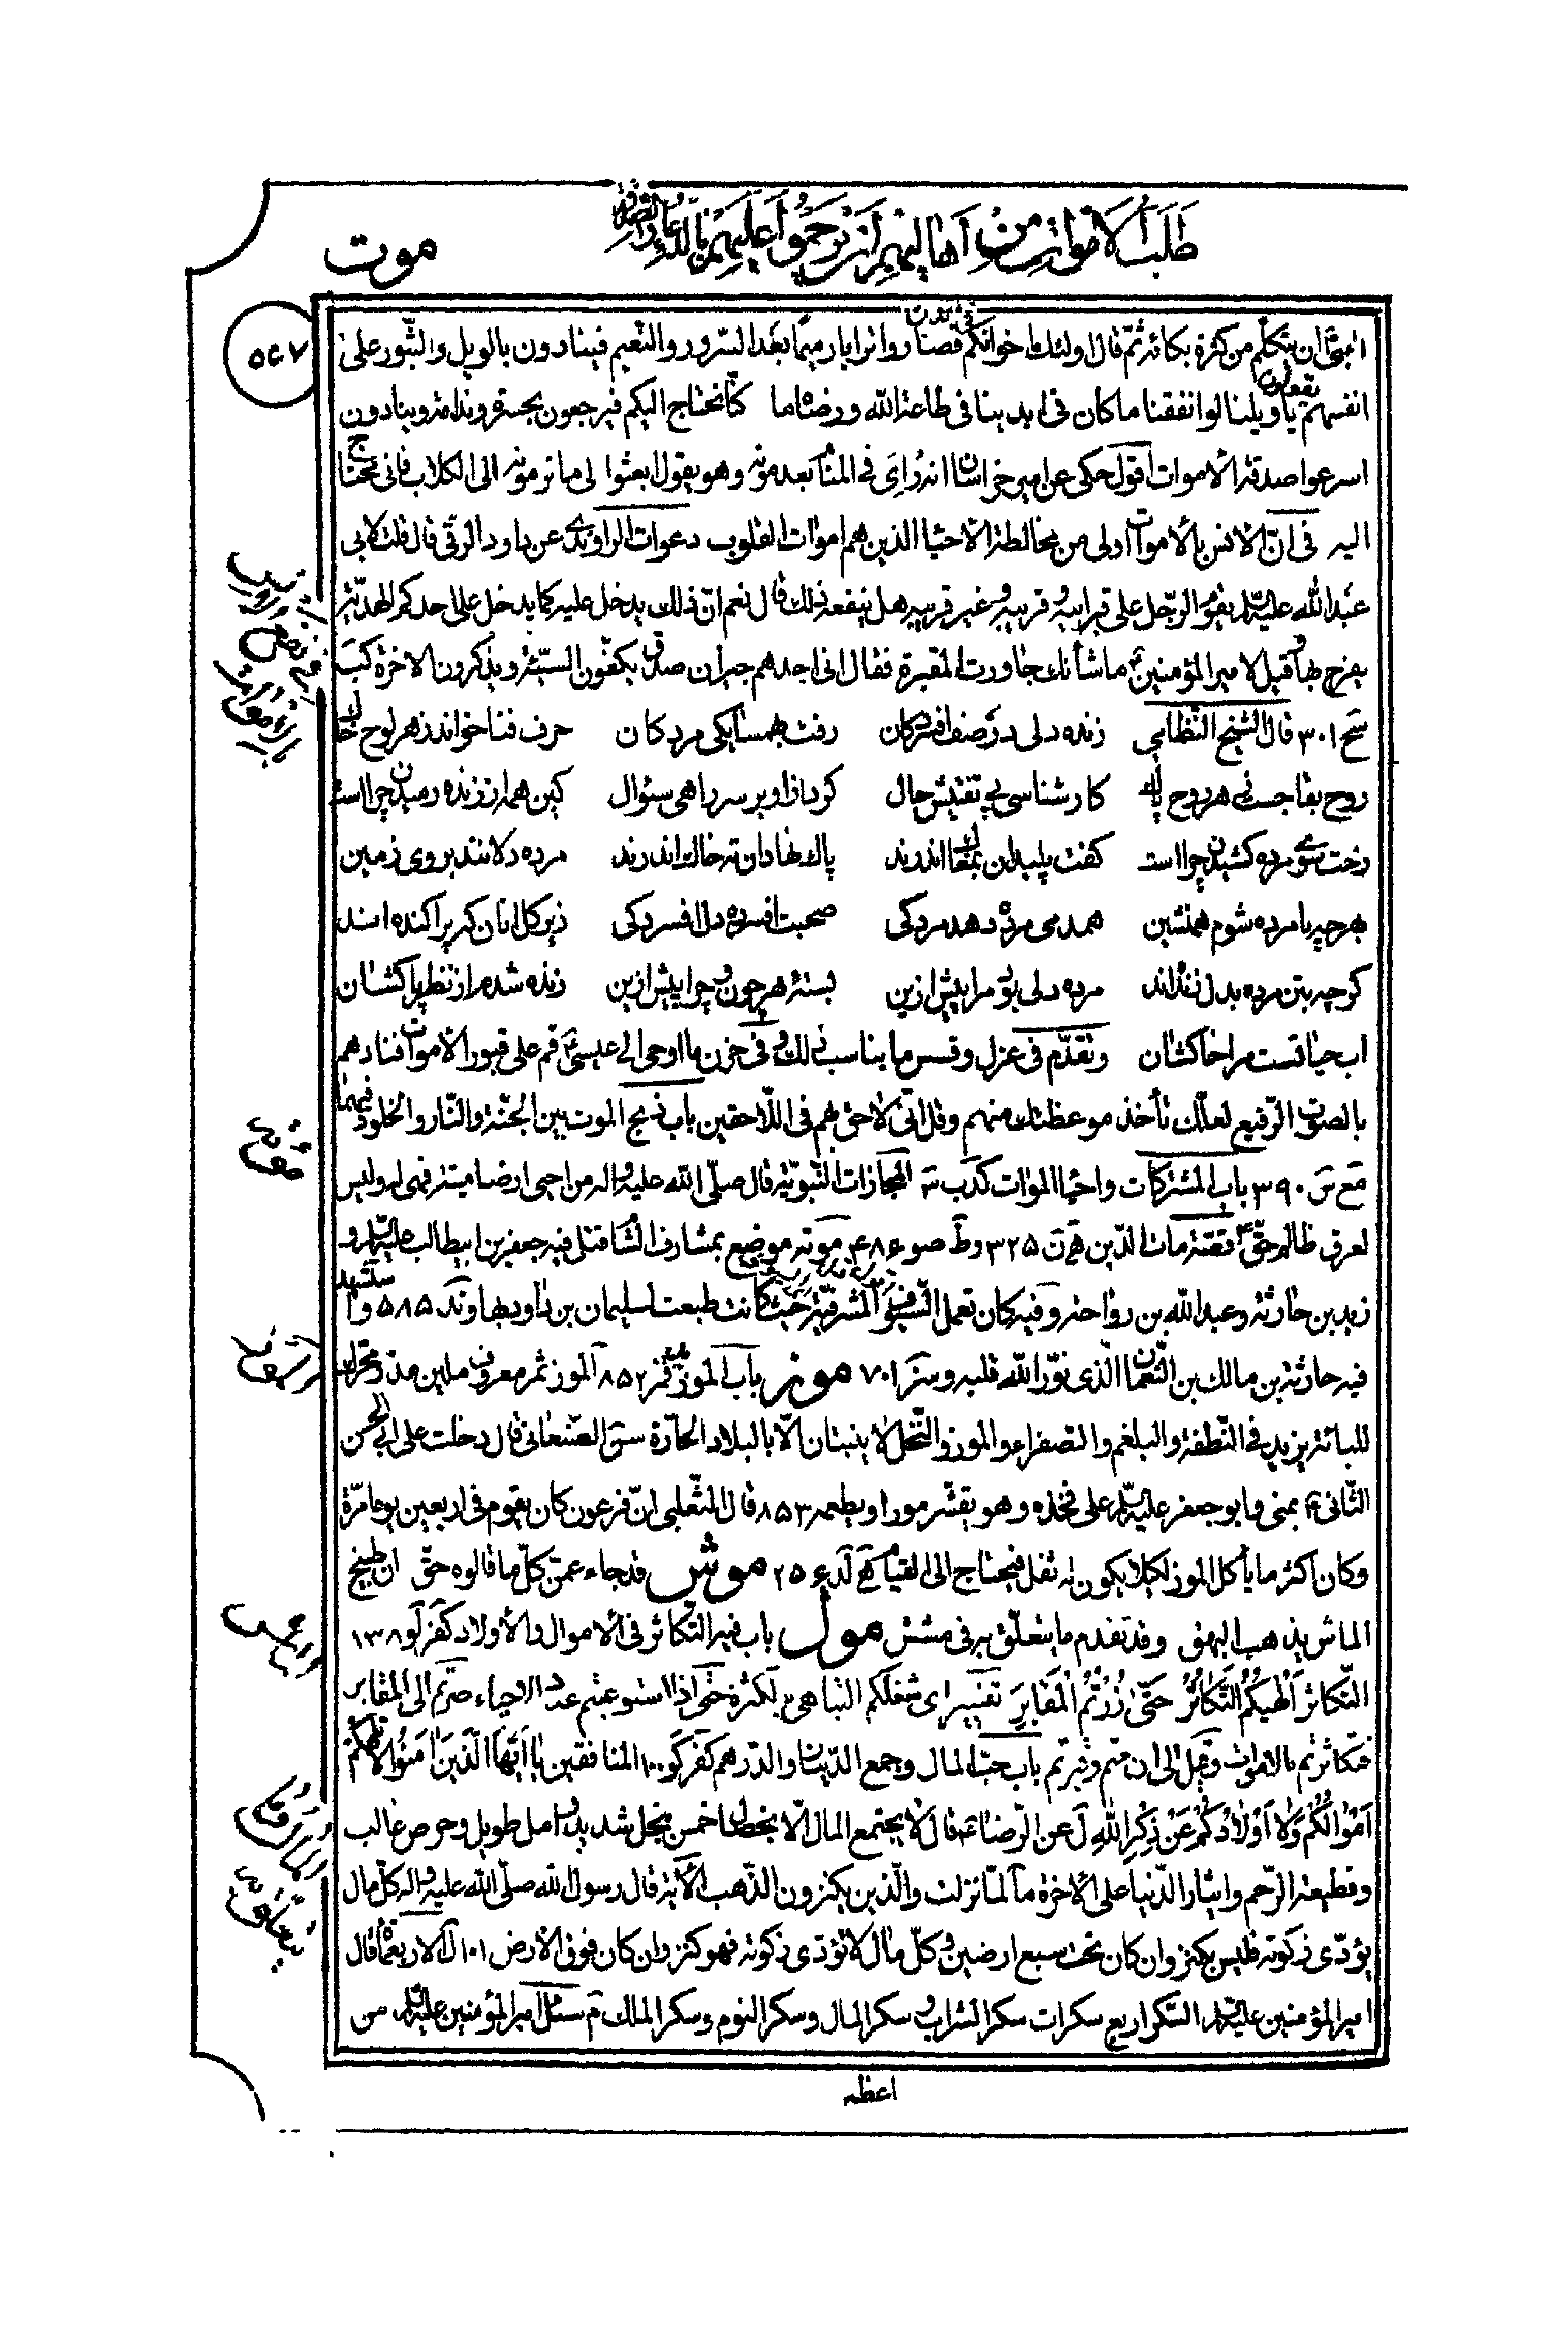 طَلَبُ الأموات مِن أهاليهم أن يَرحَمُوا عليهم بالدعاء والصدقة
موت
٥٤٧
النبى ان يتكلم من كثرة بكائه ثمّ قال اولئك اخوانكم فى الدين فصاروا ترابا رميما بعد السّرور والنّعيم فينادون بالويل والثّبور على
انفسهم يقولون يا ويلنا لو انفقنا ما كان فى ايدينا فى طاعة الله ورضاه ما كنّا نحتاج اليكم فيرجعون بحسرة وندامة وينادون
اسرعوا صدقة الأموات اقول حكى عن امير خراسان انه رُاى فى المنام بعد موته وهو يقول ابعثوا لى ما ترمونه الى الكلاب فانى محتاج
اليه فى انّ الانس بالأموات اولى من مخالطة الأحياء الذين هم اموات القلوب دعوات الراوندى عن داود الرقّى قال قلت لأبى
عبد الله عليه السلم يقوم الرّجل على قبر ابيه وقريبه وغير قريبه هل ينفعه ذلك قال نعم انّ ذلك يدخل عليه كما يدخل على احدكم الهديّة
يفرح بها وقيل لامير المؤمنينؑ ما شأنك جاورت المقبرة فقال انى اجدهم جيران صدق يكفّون السيّئة ويذكرون الاخرة كب
سح ٣٠١ قال الشيخ النّظامى زنده دلى در صف افسردكان رفت بهمسايكى مردكان حرف فنا خواند زهر لوح خاك
روح بقا جست زهر روح پاك كارشناسى پى تفتيش حال كرد از او بر سر راهى سئوال كين همه از زنده رميدن چراست
رخت سوى مرده كشيدن چراست كفت پليدان بمغاك اندرند پاك نهادان ته خاك اندرند مرده دلانند بروى زمين
بهر چه با مرده شوم همنشين همدمى مرده دهد مردكى صحبت افسرده دل افسردكى زير كل آنان كه پراكنده اند
كرچه بتن مرده بدل زنده اند مرده دلى بود مرا پيش ازين بسته هر چون وچرا پيش ازين زنده شدم از نظر پاكشان
اب حياتست مرا خاكشان وتقدّم فى عزل وقس ما يناسب ذلك وفى حزن ما اوحى الى عيسىؑ قم على قبور الأموات فنادهم
بالصوت الرّفيع لعلّك تأخذ موعظتك منهم وقل انّى لاحق هم فى اللّاحقين باب ذبح الموت بين الجنّة والنّار والخلود فيهما
مع نس ٣٩٠ باب المشتركات واحياء الموات كد ب ته المجازات النّبويّة قال صلّى الله عليه واله من احيى ارضا ميتة فهى له وليس
لعرق ظالم حقّ قصّة مات الدّين هج ن ٣٢٥ وط صو ٤٨٦ موته موضع بمشارف الشام قتل فيه جعفر بن ابيطالب عليه السلم و
زيد بن حارثة وعبد الله بن رواحة وفيه كان تعمل السّيوف المشرفيّة حيث كانت طبعت لسليمان بن داود بها وند ٥٨٥ واستشهد
فيه حارثة بن مالك بن النّعمان الّذى نوّر الله قلبه وستر ٧٠١ موز باب الموز قمز ٨٥٢ الموز ثمر معروف ملين مدرّ محرك
للباءة يزيد فى النّطفة والبلغم والصفراء والموز والنّخل لا ينبتان الّا بالبلاد الحارّة سن الصّنعانى قال دخلت على ابى الحسن
الثّانىؑ بمنى وابو جعفر عليه السلم على فخذه وهو يقشّر موزا ويطعمه ٨٥٣ قال الثّعلبى انّ فرعون كان يقوم فى اربعين يوما مرّة
وكان اكثر ما يأكل الموز لكيلا يكون له ثفل فيحتاج الى القيام هج لد ٢٥٤ موش قد جاء عمّن كلّ ما قالوه حقّ ان طبيخ
الماش يذهب البهق وقد تقدم ما يتعلّق به فى مشش مول باب فيه التّكاثر فى الأموال والأولاد كفر لو ١٣٨
التّكاثر اَلْهٰيكُمُ التَّكٰاثُرُ حَتّىٰ زُرْتُمُ الْمَقٰابِرَ تفسير اى شغلكم التباهى بالكثرة حتّى اذا استوعبتم عدد الاحياء صرتم الى المقابر
فتكاثرتم بالاموات وقيل الى ان متم وقبرتم باب حبّ المال وجمع الدّينار والدّرهم كفر كو ١٠٠ المنافقين يٰا اَيُّهَا الَّذينَ اٰمَنُوا لاٰ تُلْهِكُمْ
اَمْوٰالُكُمْ وَلاٰ اَوْلاٰدُكُمْ عَنْ ذِكْرِ اللهِ ل عن الرّضاؑ قال لا يجتمع المال الّا بخصال خمس ببخل شديد وامل طويل وحرص غالب
وقطيعة الرّحم وايثار الدّنيا على الأخرة ما لمّا نزلت والّذين يكنزون الذّهب الأية قال رسول الله صلّى الله عليه واله كلّ مال
يؤدّى زكوته فليس بكنز وان كان تحت سبع ارضين وكلّ مال لا تؤدّى زكوته فهو كنز وان كان فوق الأرض ١٠١ ل الاربعمأة قال
امير المؤمنين عليه السلم السّكر اربع سكرات سكر الشراب وسكر المال وسكر النوم وسكر الملك م سئل امير المؤمنين عليه السلم من
اعظم